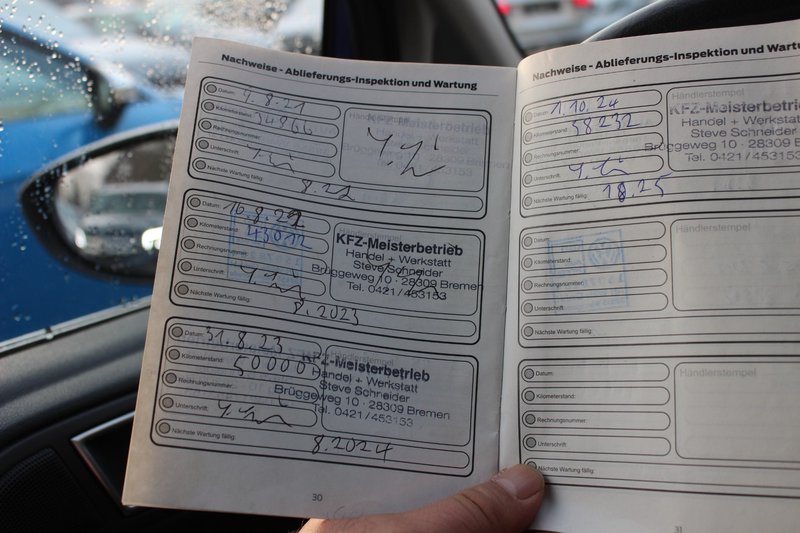 Nachweise - Ablieferungs-Inspektion und Wartung
Datum: 4.8.21
Kilometerstand: 34866
Rechnungsnummer:
Unterschrift:
Nächste Wartung fällig: 8.22
Händlerstempel
KFZ-Meisterbetrieb
Datum: 10.8.22
Kilometerstand: 43012
Rechnungsnummer:
Unterschrift:
Nächste Wartung fällig: 8.2023
KFZ-Meisterbetrieb
Handel + Werkstatt
Steve Schneider
Brüggeweg 10 · 28309 Bremen
Tel. 0421/453153
Datum: 31.8.23
Kilometerstand: 50000
Rechnungsnummer:
Unterschrift:
Nächste Wartung fällig: 8.2024
Händlerstempel
KFZ-Meisterbetrieb
Handel + Werkstatt
Steve Schneider
Brüggeweg 10 · 28309 Bremen
Tel. 0421/453153
30
Nachweise - Ablieferungs-Inspektion und Wartu
Datum: 1.10.24
Kilometerstand: 58232
Rechnungsnummer:
Unterschrift:
Nächste Wartung fällig: 10.25
Händlerstempel
KFZ-Meisterbetrie
Handel + Werkstatt
Steve Schneider
Brüggeweg 10 · 28309 Bre
Tel. 0421/453153
Datum:
Kilometerstand:
Rechnungsnummer:
Unterschrift:
Nächste Wartung fällig:
Händlerstempel
Datum:
Kilometerstand:
Rechnungsnummer:
Unterschrift:
Nächste Wartung fällig:
Händlerstempel
31